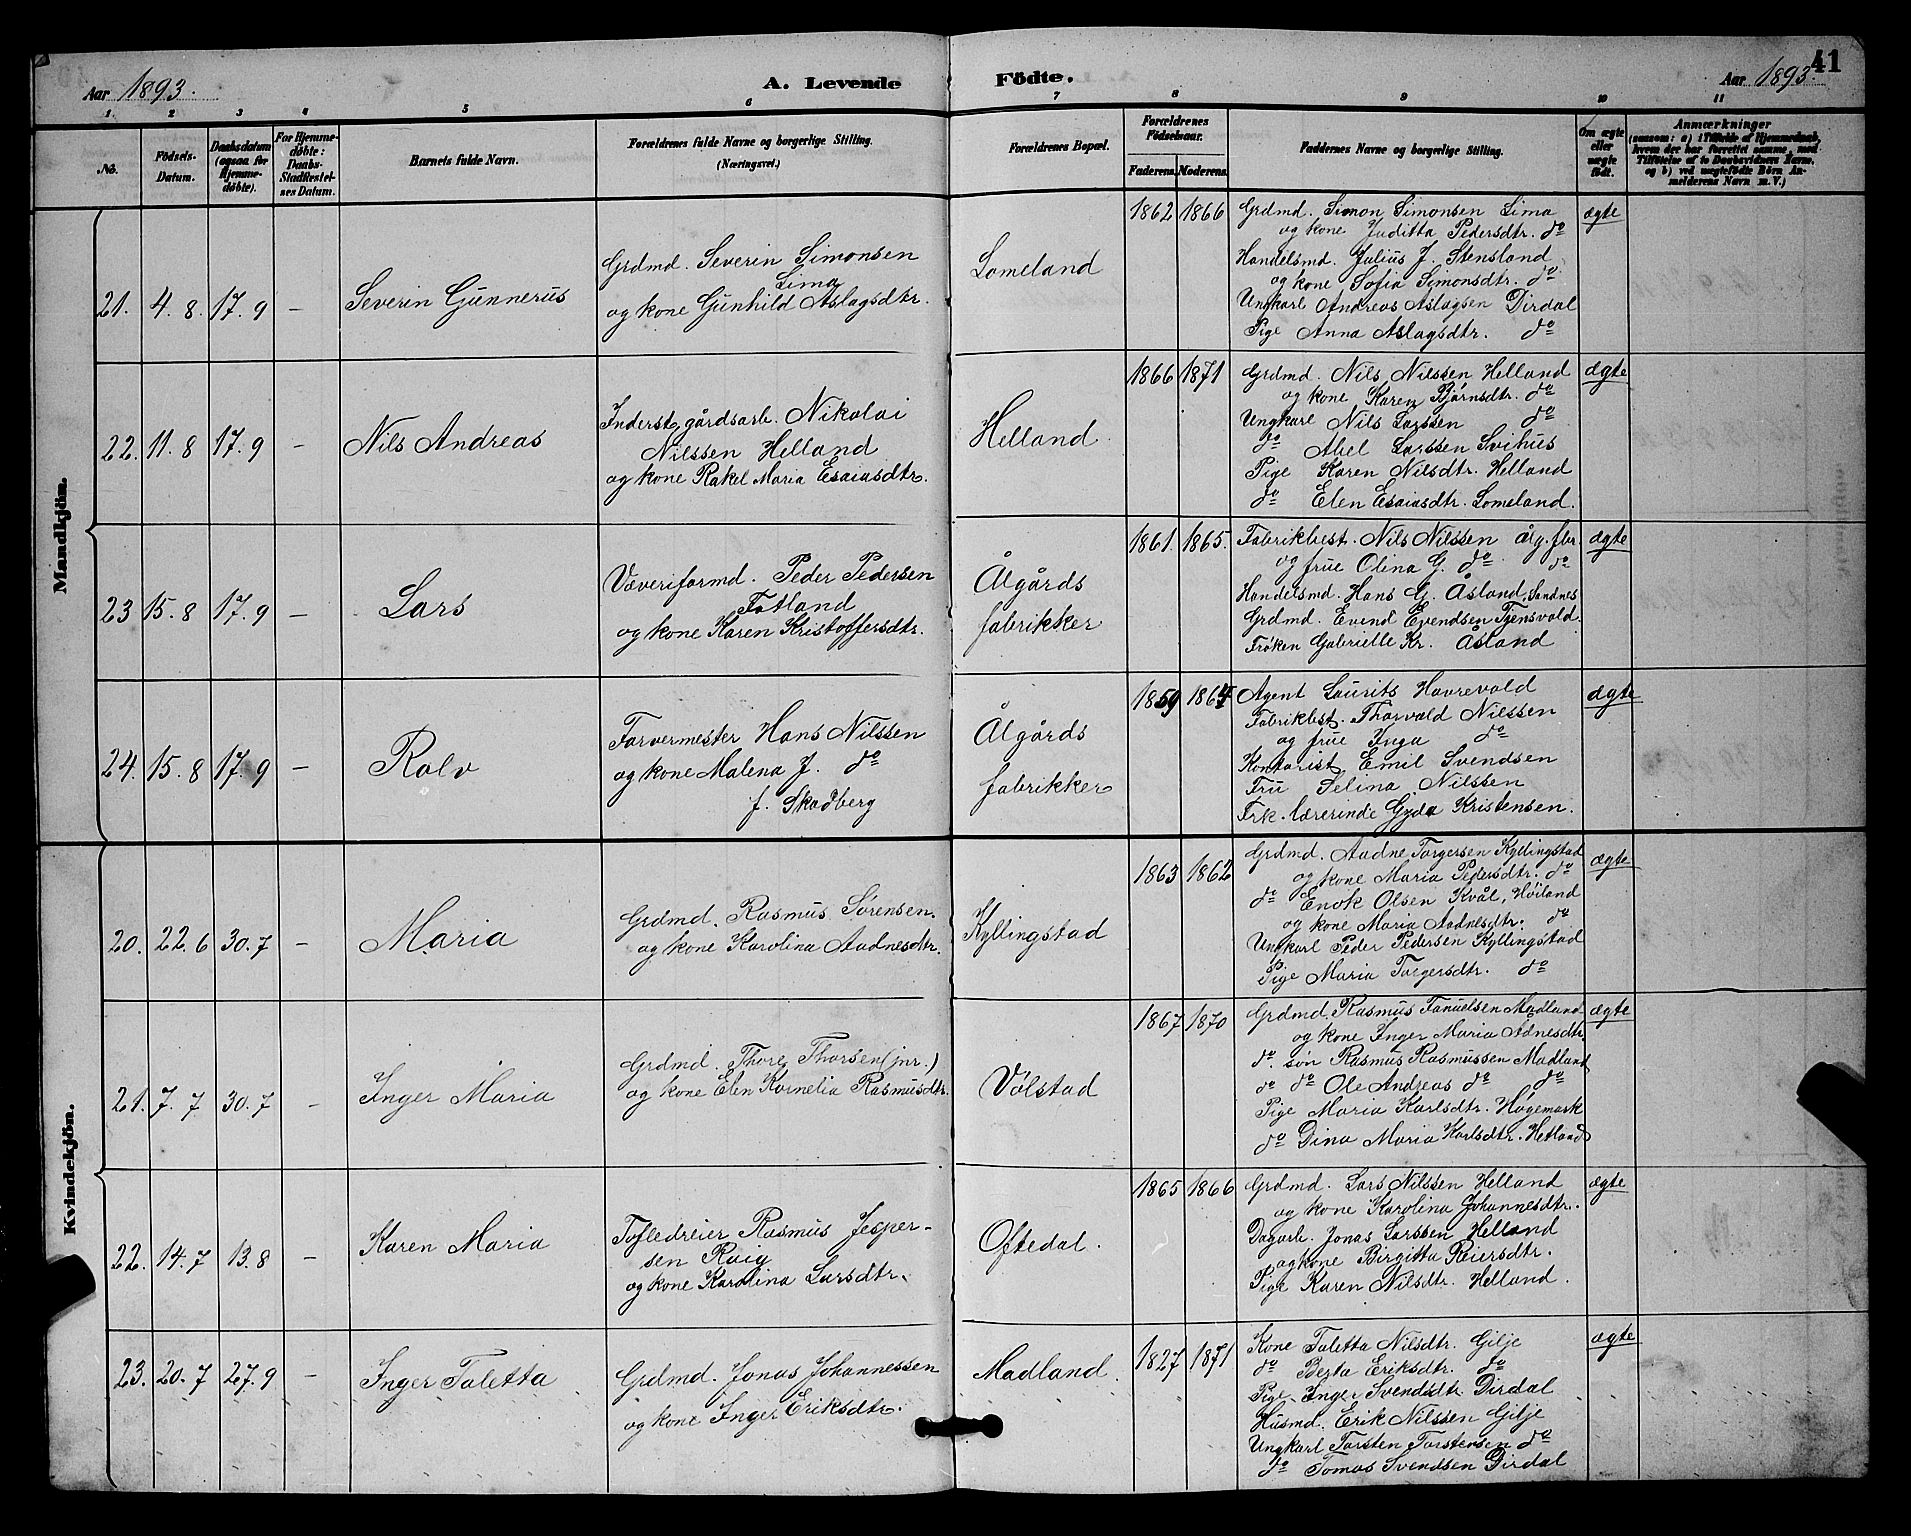 41
Aar 1893.
A. Levende Födte.
Aar 1893.
1. 2 3 4 5 6 7 8 9 10 11
No.
Födsels-
Datum.
Daabsdatum
(ogsaa for
Hjemme-
døbte).
For Hjemme-
døbte:
Daabs-
Stadfæstel-
ses Datum.
Barnets fulde Navn.
Forældrenes fulde Navne og borgerlige Stilling.
(Næringsvei.)
Forældrenes Bopæl.
Forældrenes
Födselsaar.
Faderens. Moderens.
Faddernes Navne og borgerlige Stilling.
Om ægte
eller
uægte
født.
Anmærkninger
(saasom: a) i Tilfælde af Hjemmedaab,
hvem der har forrettet samme, med
Tilføielse af to Daabsvidners Navne,
og b) ved uægtefödte Börn An-
melderens Navn m. V.)
Mandkjön.
21. 4. 8. 17. 9 —
Severin Gunnerus
Grdmd. Severin Simonsen
Lima
og kone Gunhild Aslagsdtr.
Lomeland
1862 1866
Grdmd. Simon Simonsen Lima
og kone Juditta Pedersdtr. do
Handelsmd. Julius J. Stensland
og kone Sofia Simonsdtr. do
Ungkarl Andreas Aslagsen Dirdal
Pige Anna Aslagsdtr. do
ægte
22. 11. 8 17. 9 —
Nils Andreas
Inderst, gårdsarb. Nikolai
Nilssen Helland
og kone Rakel Maria Esaiasdtr.
Helland.
1866 1871
Grdmd. Nils Nilssen Helland
og kone Karen Bjørnsdtr. do
Ungkarl Nils Larssen do
do Abel Larssen Svihus
Pige Karen Nilsdtr. Helland
do Elen Esaiasdtr. Lomeland.
ægte
23 15. 8 17. 9 —
Lars
Væveriformd. Peder Pedersen
Fotland
og kone Karen Kristoffersdtr.
Ålgårds
fabrikker
1861. 1865.
Fabrikbest. Nils Nilssen Ålg. fbr.
og frue Olina G. do do
Handelsmd. Hans G. Åsland, Sandnes
Grdmd. Evend Evendsen Tjensvold.
Frøken Gabrielle Kr. Åsland
ægte
24. 15. 8 17. 9 —
Rolv
Farvermester Hans Nilssen
og kone Malena J. do
f. Skadberg
Ålgårds
fabrikker
1859 1864
Agent Laurits Havrevold
Fabrikbest. Thorvald Nilssen
og frue Inga do
Kontorist Emil Svendsen
Fru Selina Nilssen
Frk. lærerinde Gyda Kristensen.
ægte
Kvindekjön.
20. 22. 6 30. 7 —
Maria
Grdmd. Rasmus Sørensen.
og kone Karolina Aadnesdtr.
Kyllingstad
1863 1862
Grdmd. Aadne Torgersen Kyllingstad
og kone Maria Pedersdtr. do
do Enok Olsen Kvål, Høiland
og kone Maria Aadnesdtr. do
Ungkarl Peder Pedersen Kyllingstad
Pige Maria Torgersdtr. do
ægte
21. 7. 7 30. 7 —
Inger Maria
Grdmd. Thore Thorsen (jnr.)
og kone Elen Kornelia Rasmusdtr.
Vølstad
1867 1870
Grdmd. Rasmus Fanuelsen Madland
og kone Inger Maria Adnesdtr.
do. søn Rasmus Rasmussen Madland
do do Ole Andreas do do
Pige Maria Karlsdtr. Høgemark
do Dina Maria Karlsdtr. Hetland
ægte
22. 14. 7 13. 8 —
Karen Maria
Tofledreier Rasmus Jesper-
sen Raig
og kone Karolina Larsdtr.
Oftedal.
1865 1866
Grdmd. Lars Nilssen Helland
og kone Karolina Johannesdtr.
Dagarb. Jonas Larssen Helland
og kone Birgitta Reiersdtr.
Pige Karen Nilsdtr. Helland.
ægte
23. 20. 7 27. 9 —
Inger Taletta
Grdmd. Jonas Johannessen
og kone Inger Eriksdtr.
Madland.
1827 1871
Kone Taletta Nilsdtr. Gilje
do Berta Eriksdtr. do
Pige Inger Svendsdtr. Dirdal
Husmd. Erik Nilssen Gilje
Ungkarl Torsten Torstensen do
do Tomas Svendsen Dirdal
ægte